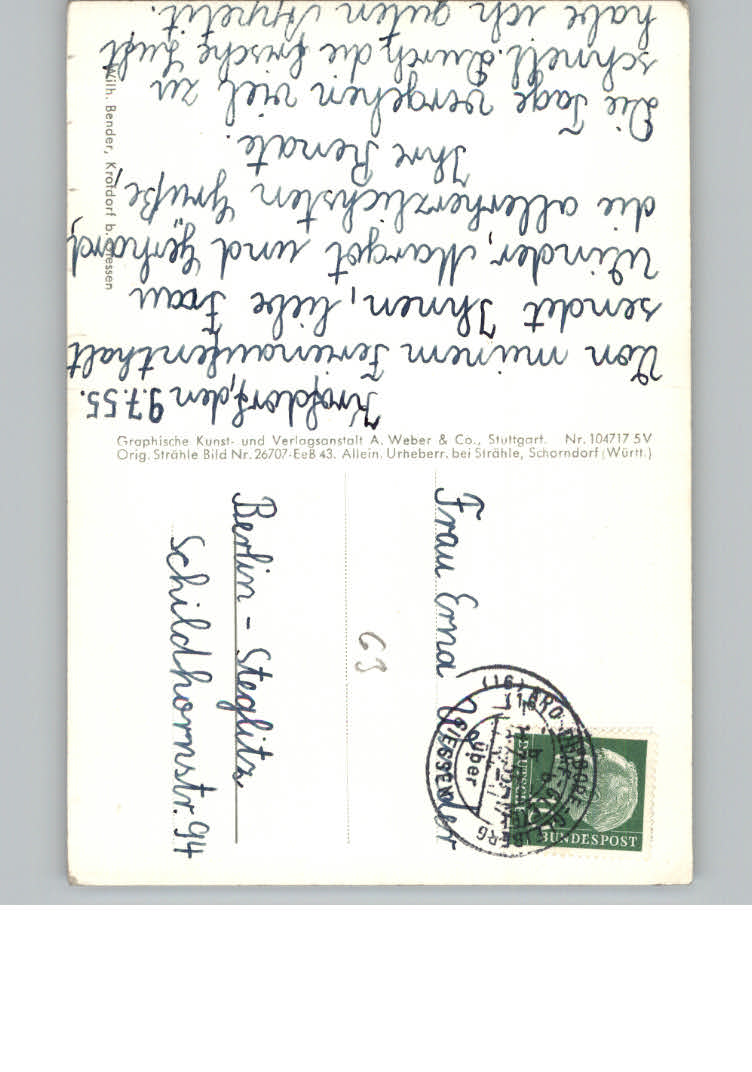 Krofdorf, den 9.7.55.
Von meinem Ferienaufenthalt
sendet Ihnen, liebe Frau
Winder, Margot und Gerhard,
die allerherzlichsten Grüße,
Ihre Renate.
Die Tage vergehen viel zu
schnell. Durch die frische Luft
habe ich guten Appetit.
Wilh. Bender, Krofdorf b. Giessen
Graphische Kunst- und Verlagsanstalt A. Weber & Co., Stuttgart. Nr. 104717 5V
Orig. Strähle Bild Nr. 26707-EeB 43. Allein. Urheberr. bei Strähle, Schorndorf (Württ.)
Frau Erna Winder
Berlin - Steglitz
Schildhornstr. 94
63
(16)
über
GIESSEN
BUNDESPOST